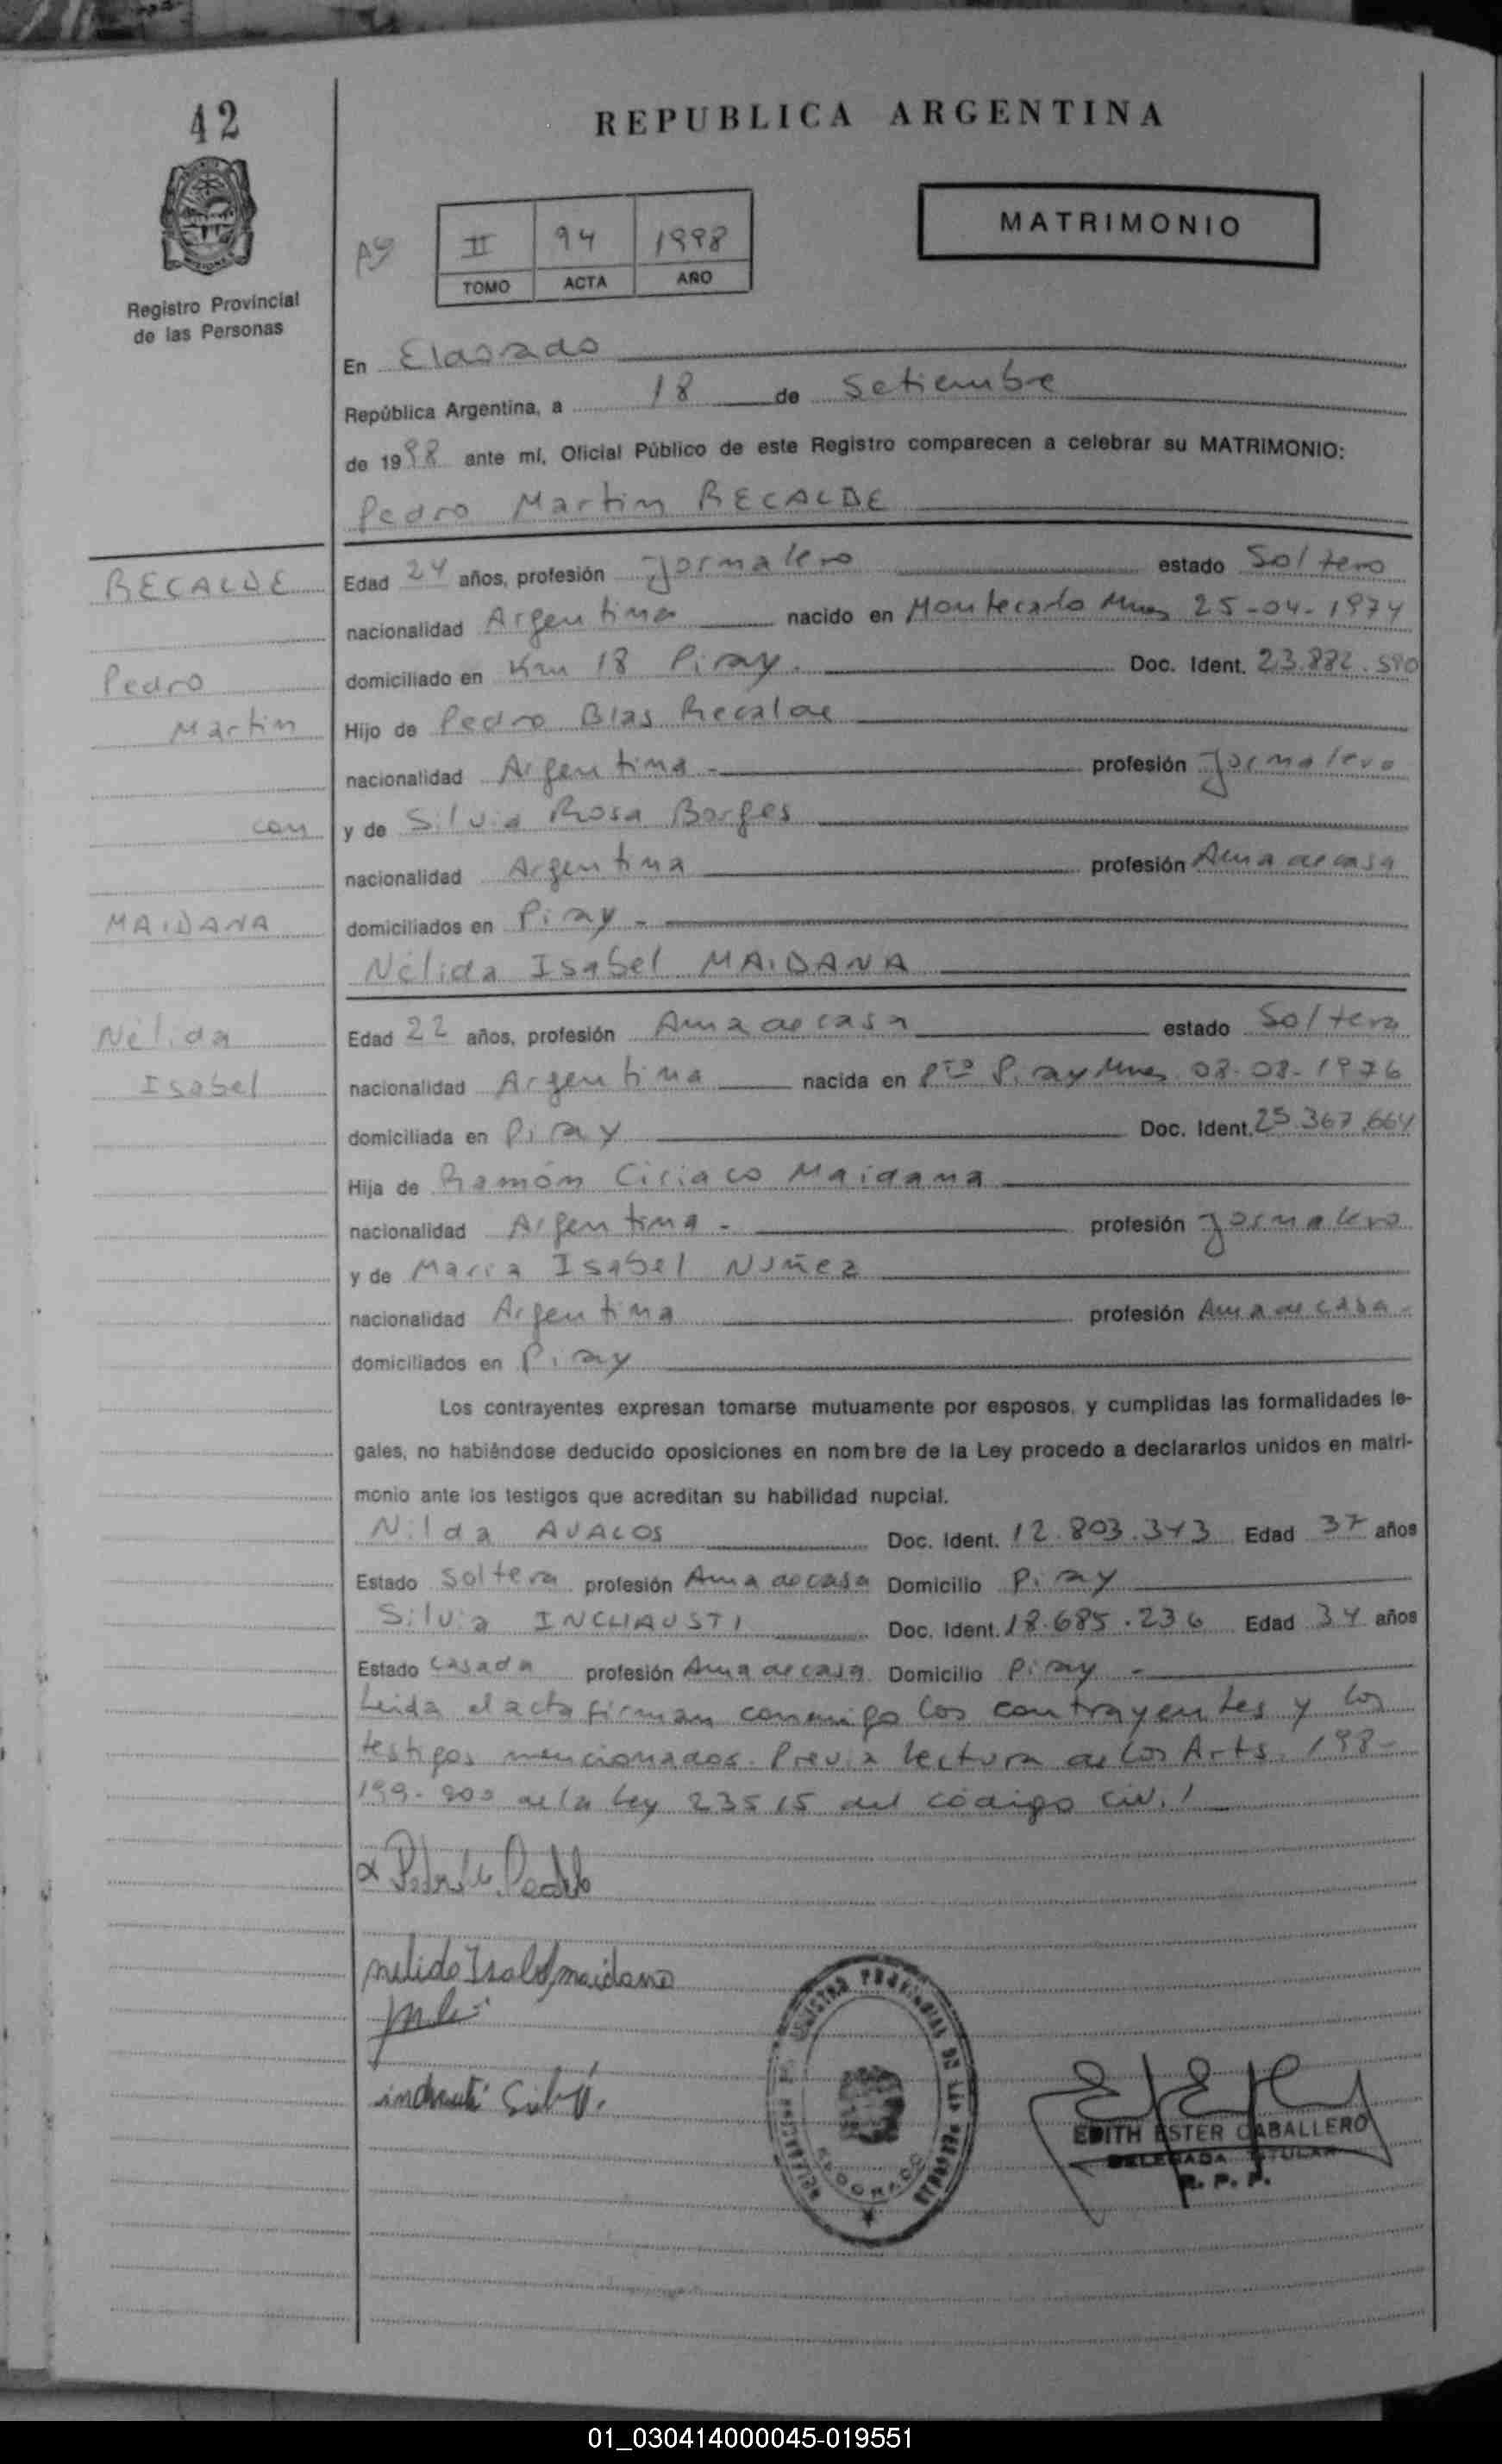 42
REPUBLICA ARGENTINA
MATRIMONIO
II 94 1998
TOMO ACTA AÑO
Registro Provincial
de las Personas
En Eldorado
República Argentina, a 18 de Setiembre
de 1998 ante mí, Oficial Público de este Registro comparecen a celebrar su MATRIMONIO:
Pedro Martin RECALDE
RECALDE
Pedro
Martin
con
MAIDANA
Nélida
Isabel
Edad 24 años, profesión Jornalero estado Soltero
nacionalidad Argentina nacido en Montecarlo Mnes 25-04-1974
domiciliado en Km 18 Piray. Doc. Ident. 23.882.590
Hijo de Pedro Blas Recalde
nacionalidad Argentina - profesión Jornalero
y de Silvia Rosa Borges
nacionalidad Argentina profesión Ama de casa
domiciliados en Piray -
Nélida Isabel MAIDANA
Edad 22 años, profesión Ama de casa estado Soltera
nacionalidad Argentina nacida en Pto Piray Mnes 08-08-1976
domiciliada en Piray Doc. Ident. 25.367.664
Hija de Ramón Ciriaco Maidana
nacionalidad Argentina - profesión Jornalero
y de Maria Isabel Nuñez
nacionalidad Argentina profesión Ama de casa -
domiciliados en Piray
Los contrayentes expresan tomarse mutuamente por esposos, y cumplidas las formalidades le-
gales, no habiéndose deducido oposiciones en nombre de la Ley procedo a declararlos unidos en matri-
monio ante los testigos que acreditan su habilidad nupcial.
Nilda AVALOS Doc. Ident. 12.803.343 Edad 37 años
Estado Soltera profesión Ama de casa Domicilio Piray
Silvia INCHAUSTI Doc. Ident. 18.685.236 Edad 34 años
Estado Casada profesión Ama de casa Domicilio Piray -
Leida el acta firman conmigo los contrayentes y los
testigos mencionados. Previa lectura de los Arts. 198-
199-200 de la Ley 23515 del código civil
nelida Isabel maidana
inchausti Silvia.
EDITH ESTER CABALLERO
DELEGADA TITULAR
R. P. P.
ELDORADO
01_030414000045-019551